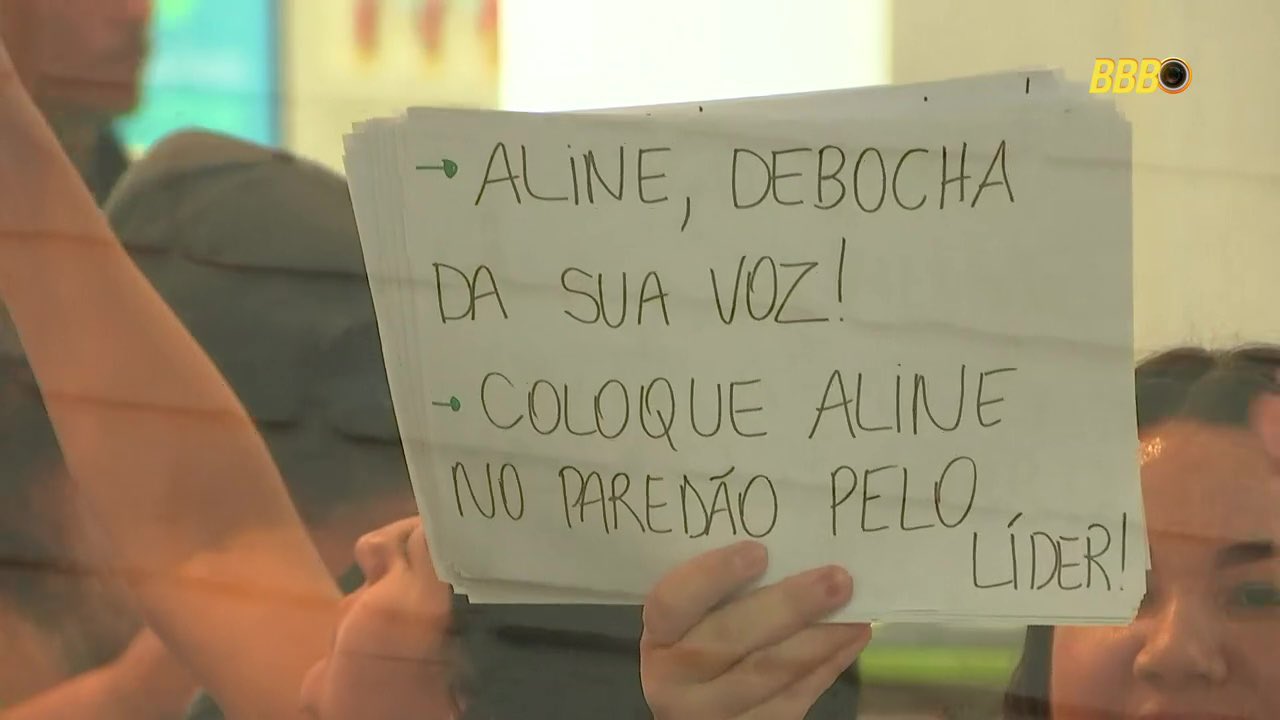 BBB
→ ALINE, DEBOCHA
DA SUA VOZ!
→ COLOQUE ALINE
NO PAREDÃO PELO
LÍDER!